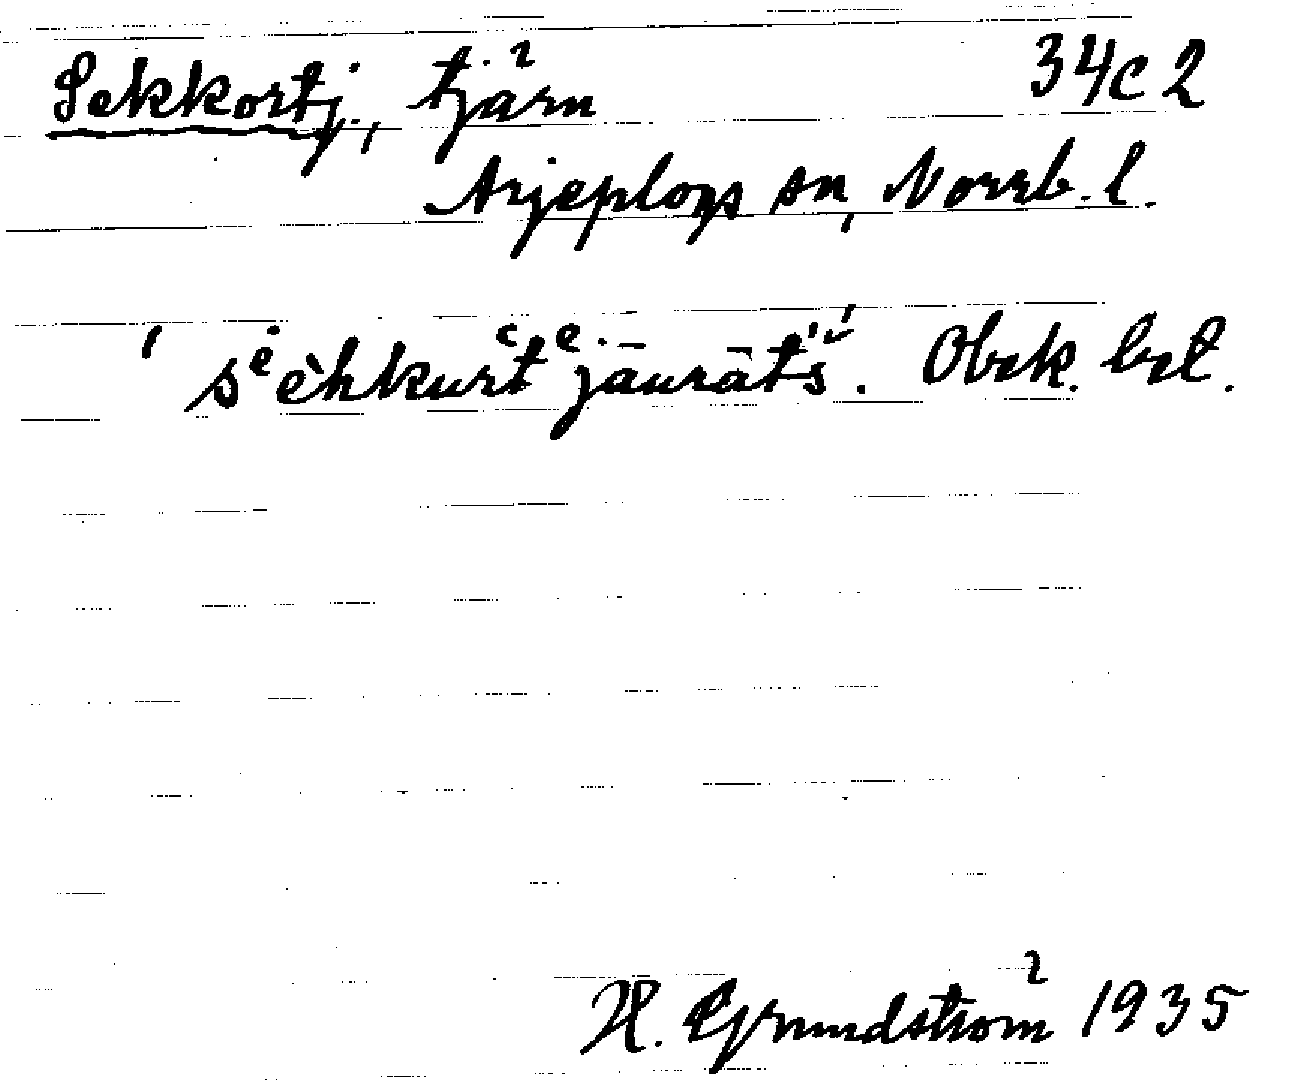 Sekkortj., tjärn 34c2
Arjeplogs sn, Norrb. l.
ˈsᵉèhkurt͑ᵉjāurāt́ś. Obrk. brl.
H. Grundström 1935